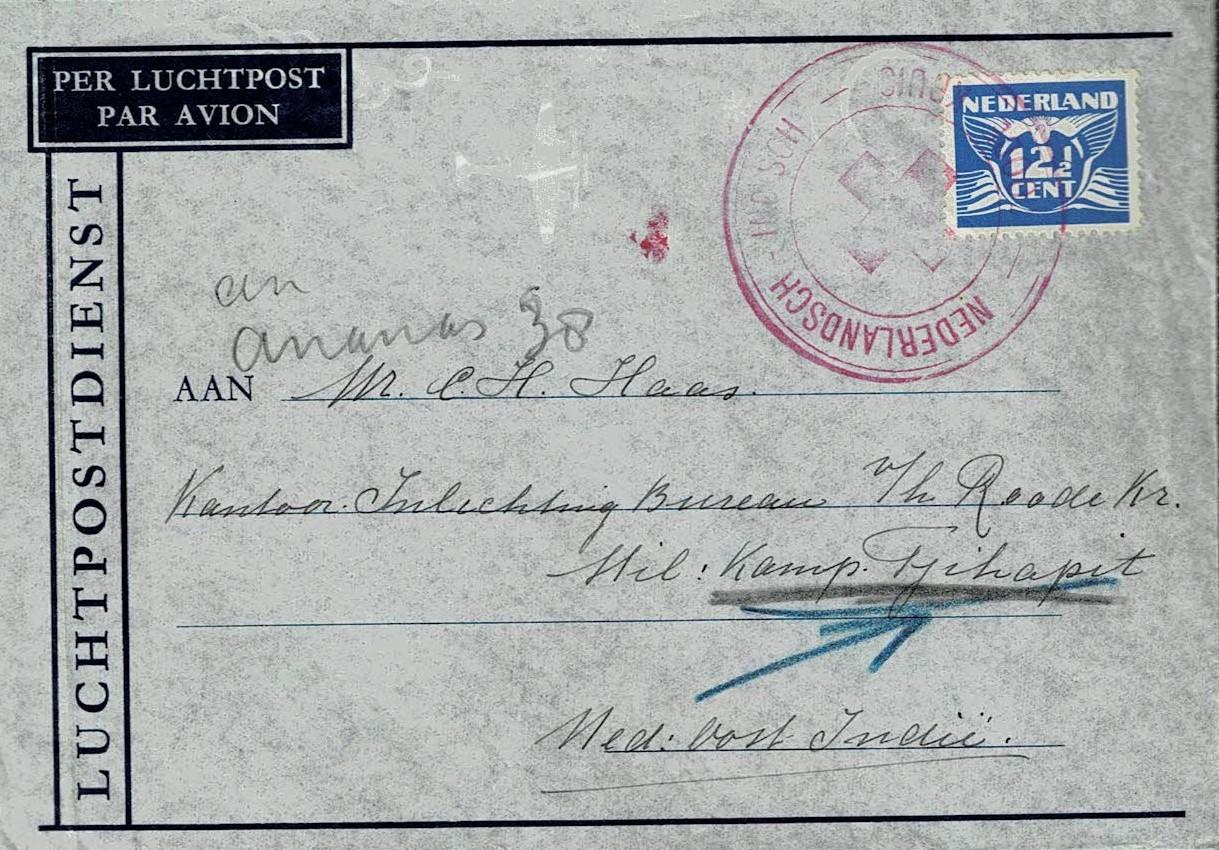 PER LUCHTPOST
PAR AVION
LUCHTPOSTDIENST
NEDERLANDSCH-INDISCH
KRUIS
NEDERLAND
12½
CENT
an
ananas 38
AAN Mr. C. H. Haas.
Kantoor. Inlichting Bureau v/h. Roode Kr.
Mil: Kamp. Tjihapit
Ned: Oost Indië.